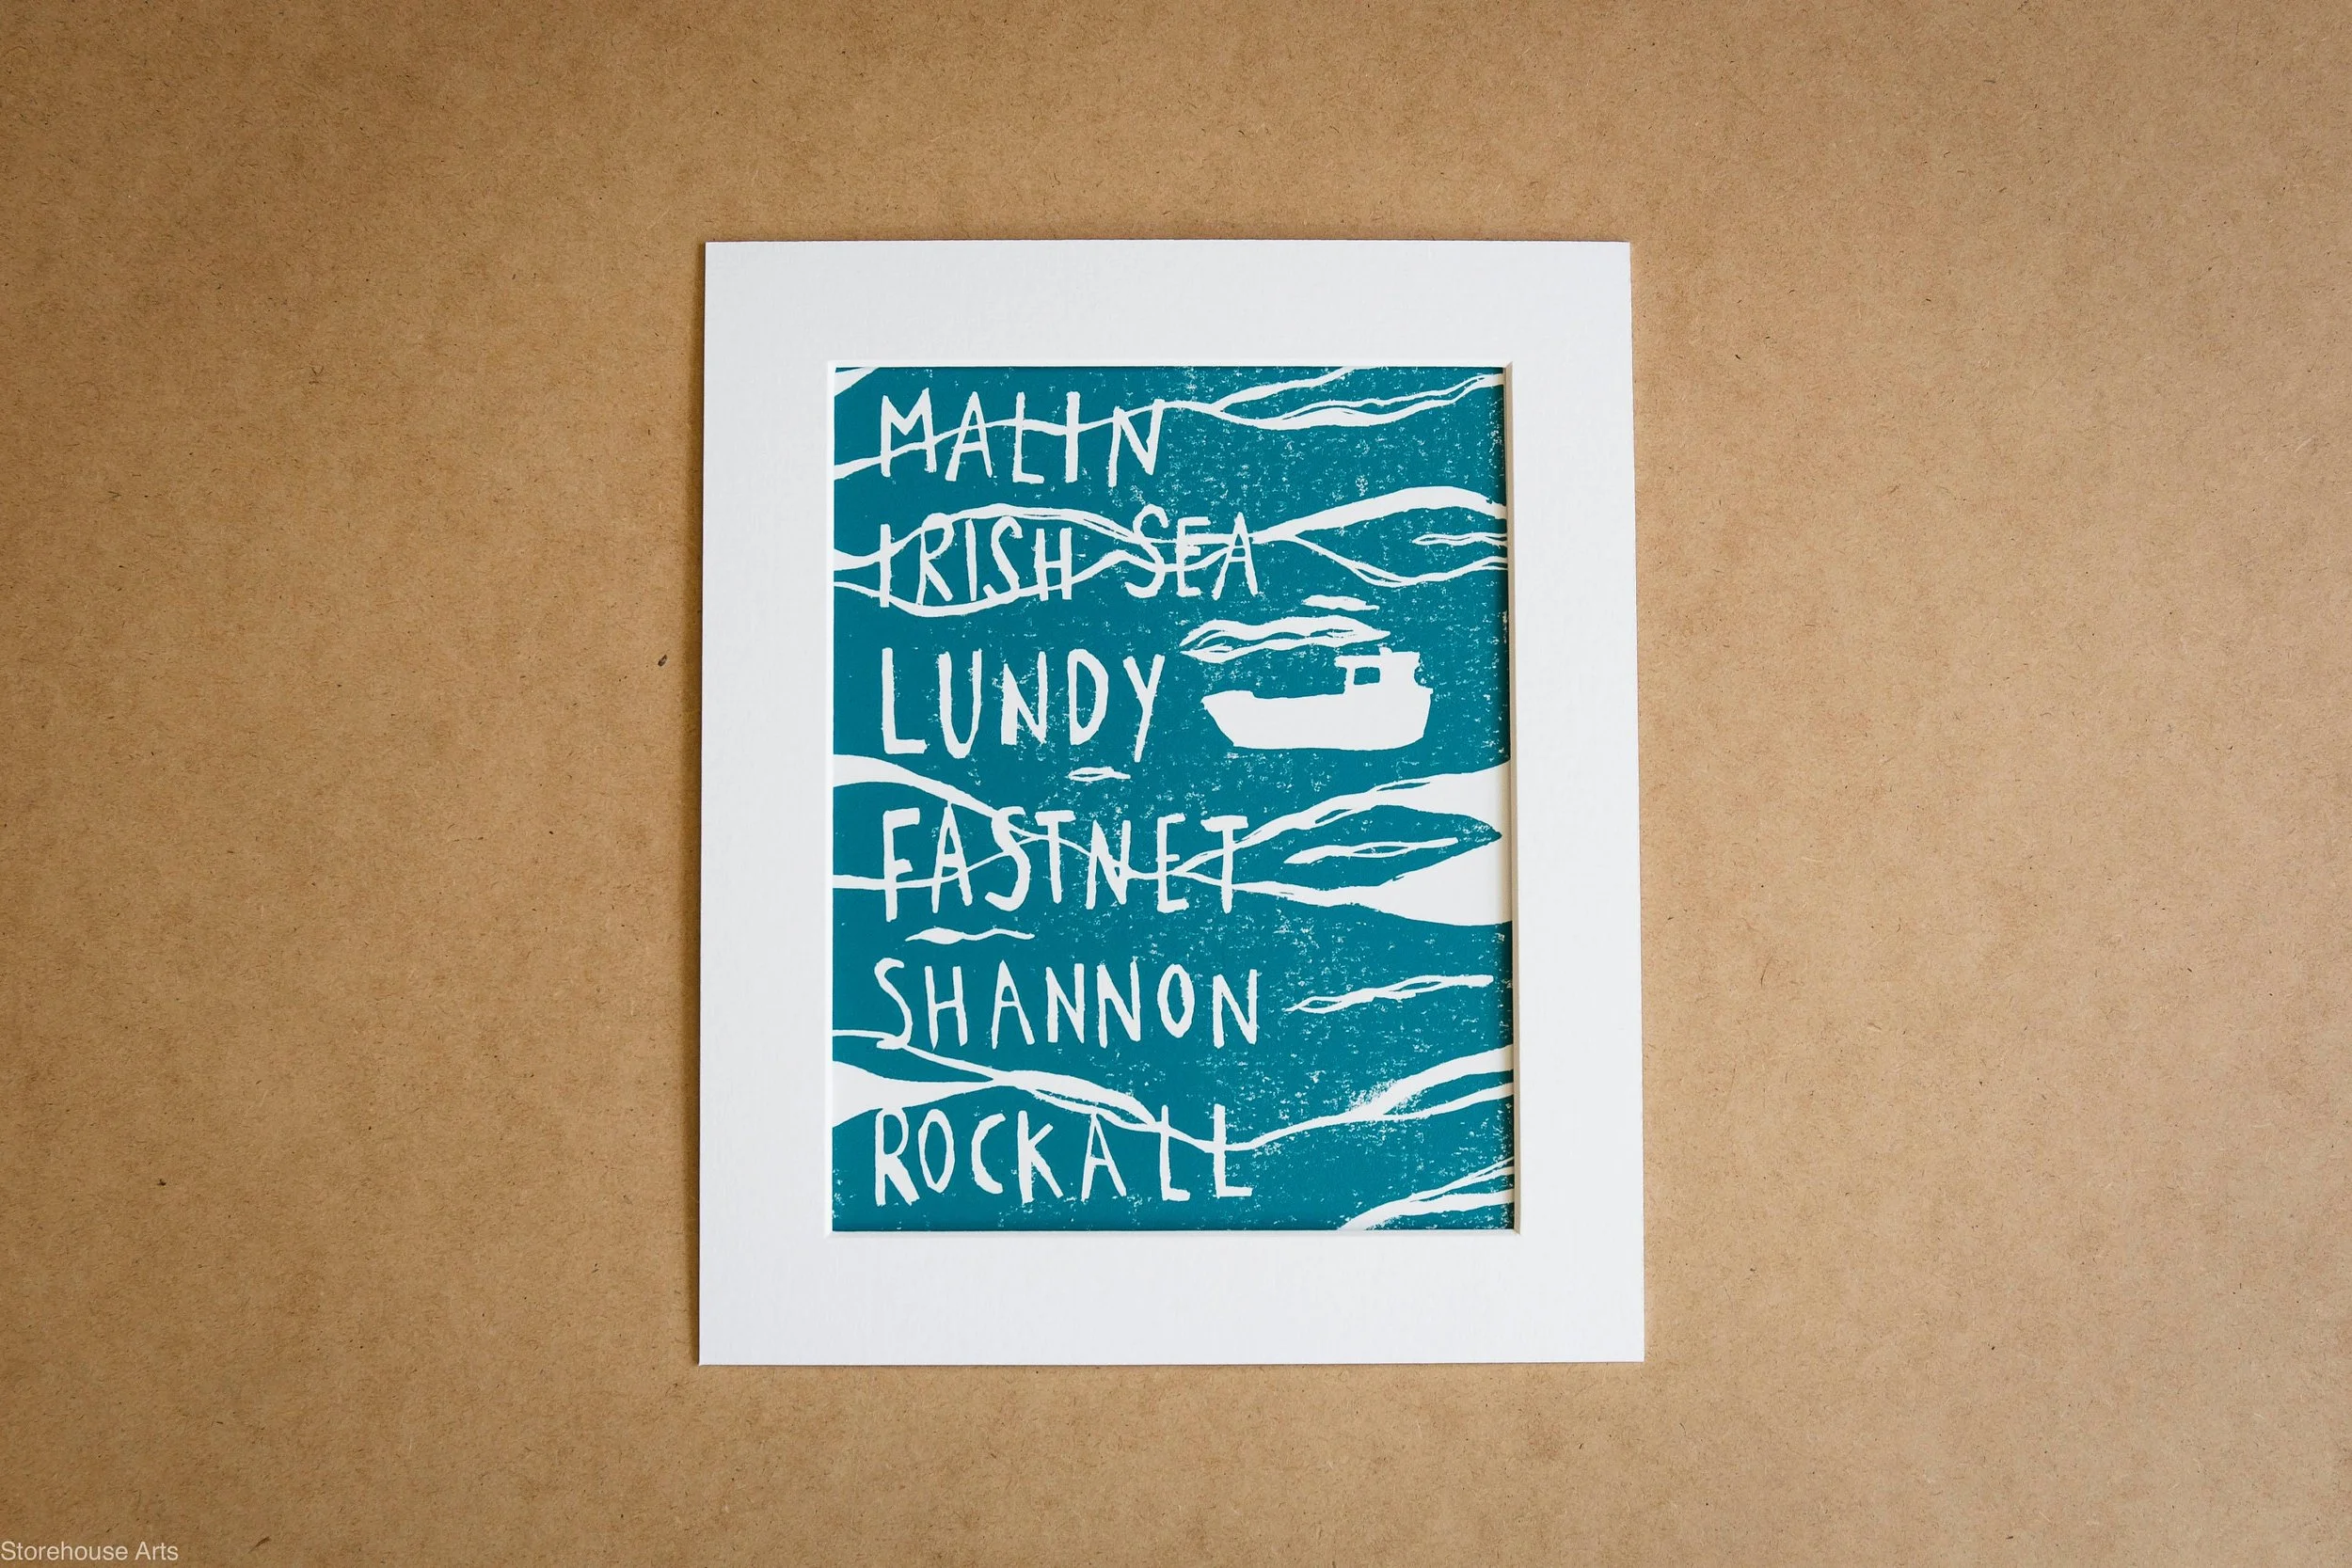 MALIN
IRISH SEA
LUNDY
FASTNET
SHANNON
ROCKALL
Storehouse Arts